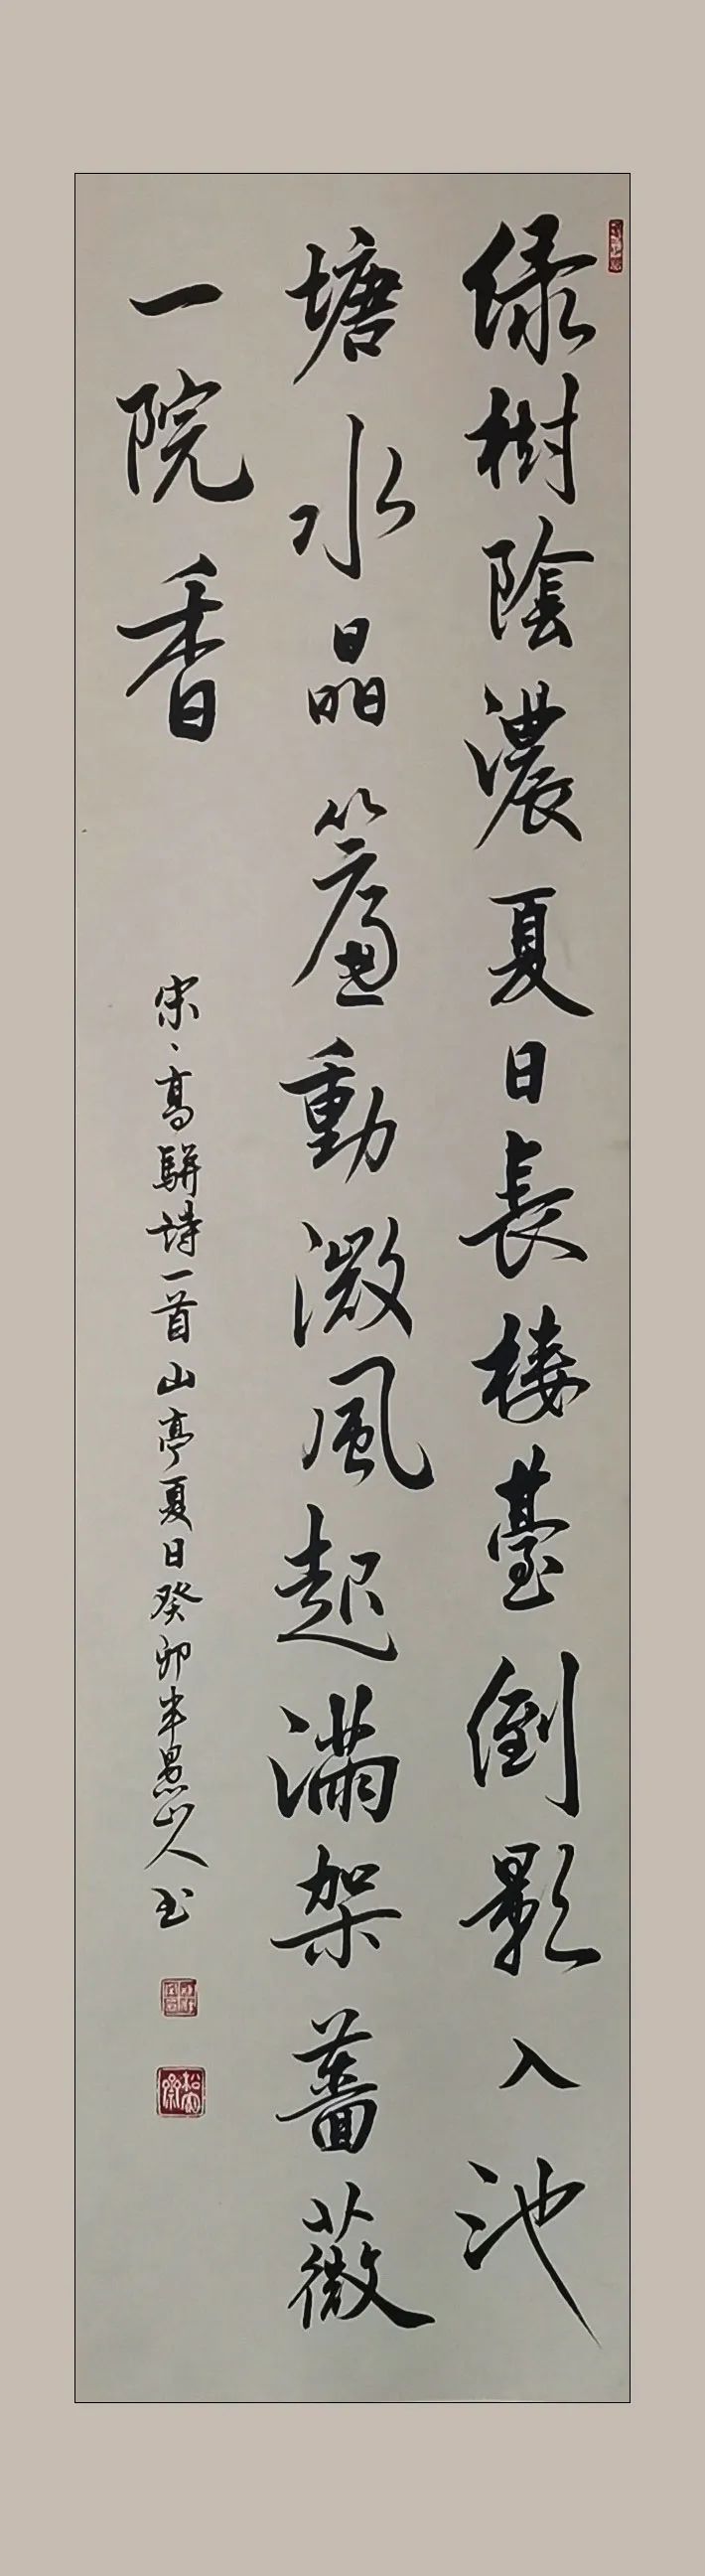 绿樹陰濃夏日長楼臺倒影入池
塘水晶簾動微風起滿架薔薇
一院香
宋、高駢詩一首山亭夏日癸卯半愚山人书